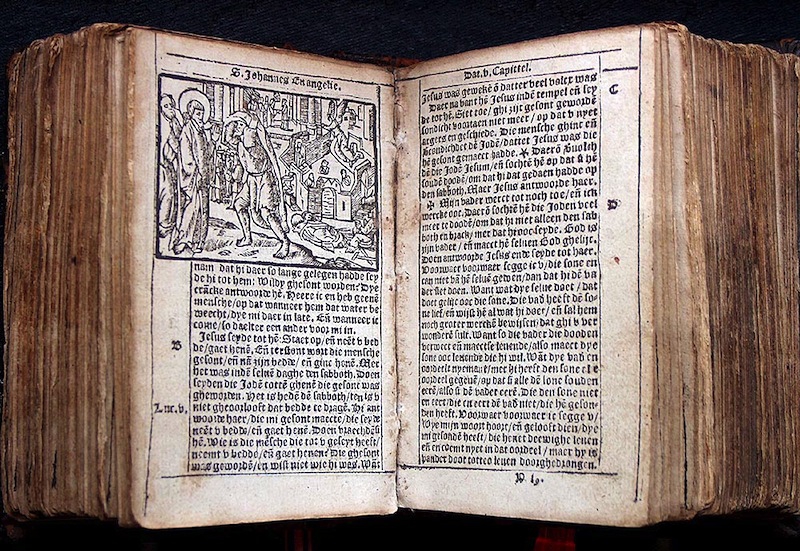 S. Johannes Euangelie.
nam dat hi daer so lange gelegen hadde sey
de hi tot hem: Wildy ghesont worden: Dye
crācke antwoorde hē. Heere ic en heb geenē
mensche/op dat wanneer hem dat water be
weecht/dye mi daer in late. En wanneer ic
come/so daelter een ander voor mi in.
B
Jesus seyde tot hē: Staet op/en neēt v bed
de/gaet henē. En terstont wart die mensche
gesont/en nā zijn bedde/ en ginc henē. Met
het was indē seluē daghe den sabboth. Doen
seyden die Jodē tottē ghenē die gesont was
gheworden. Het is hedē dē sabboth/ten is v
Luc. v.
niet gheoorlooft dat bedde te dragē. Hi ant
woorde haer/die mi gesont maecte/die seyde
neēt v bedde/en gaet henē. Doen vraechdēsi
hē. Wie is die mēsche die tot v geseyt heeft/
neemt v bedde/en gaet henen: Die ghesont
was gewordē/en wist niet wie hi was. Wāt
Dat. v. Capittel.
Jesus was gewekē ō datter veel volcx was
Daer na vant hē Jesus indē tempel en sey
C
de tot hē. Siet toe/ghi zijt gesont gewordē
sondicht voortaen niet meer/op dat v nyet
argers en geschiede. Die mensche ghinc en
vercondichdet dē Jodē/dattet Jesus was die
hē gesont gemaect hadde. Daerō veruolch
dē die Jodē Jesum/en sochtē hē op dat si hē
soudē doodē/om dat hi dat gedaen hadde op
den sabboth. Maer Jesus antwoorde haer.
D
Mijn vader werct tot noch toe/en ick
wercke ooc. Daerō sochtē hē die Joden veel
meer te doodē/om dat hi niet alleen den sab
both en brack/mer dat hi ooc seyde. God is
zijn vader/en maect hē seluen God ghelijc.
Doen antwoorde Jesus ende seyde tot haer.
Voorwaer voorwaer segge ic v/die sone en
can niet vā hē seluē gewen/dan dat hi dē va
der siet doen. Want wat dye selue doet/dat
doet gelijc ooc die sone. Die vad heeft dē so-
ne lief/en wijst hē al wat hi doet/en sal hem
noch groter werckē bewijsen/dat ghi v ver
wonderē sult. Want so die vader die dooden
verwect en maectse leuende/also maect dye
sone ooc leuende die hi wil. Wāt dye vad en
oordeelt nyemant/mer hi heeft den sone elc
oordeel gegeuē/op dat si alle dē sone souden
eerē/also si dē vader eerē. Die den sone niet
en eert/die en eert dē vad niet/die hē geson-
den heeft. Voorwaer voorwaer ic segge v/
Wye mijn woort hoort/en gelooft dien/dye
mi gesondē heeft/die heeft deewighe leuen
en en coemt nyet in dat oordeel/ maer hy is
vander doot totten leuen doorghedrongen.